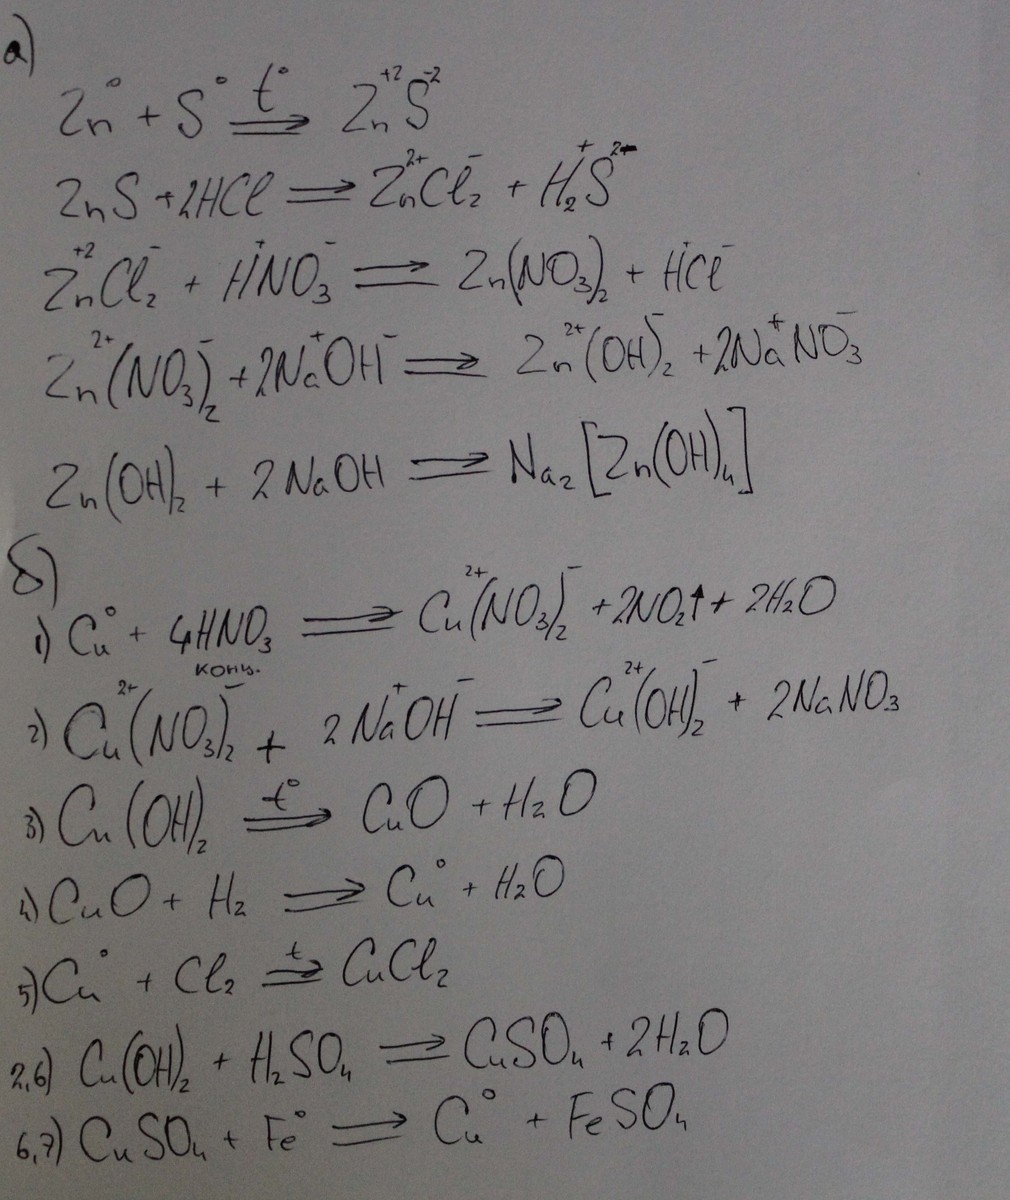 а)
Zn⁰ + S⁰ =t°=> Zn⁺²S⁻²
ZnS + 2HCl => Zn²⁺Cl⁻₂ + H⁺₂S²⁻
Zn⁺²Cl⁻₂ + H⁺NO₃⁻ => Zn(NO₃)₂ + H⁺Cl⁻
Zn²⁺(NO₃)⁻₂ + 2Na⁺OH⁻ => Zn²⁺(OH)⁻₂ + 2Na⁺NO₃⁻
Zn(OH)₂ + 2NaOH => Na₂[Zn(OH)₄]
б)
1) Cu⁰ + 4HNO₃ => Cu²⁺(NO₃)⁻₂ + 2NO₂↑ + 2H₂O
конц.
2) Cu²⁺(NO₃)⁻₂ + 2Na⁺OH⁻ => Cu²⁺(OH)⁻₂ + 2NaNO₃
3) Cu(OH)₂ =t°=> CuO + H₂O
4) CuO + H₂ => Cu⁰ + H₂O
5) Cu⁰ + Cl₂ =t=> CuCl₂
2,6) Cu(OH)₂ + H₂SO₄ => CuSO₄ + 2H₂O
6,7) CuSO₄ + Fe⁰ => Cu⁰ + FeSO₄